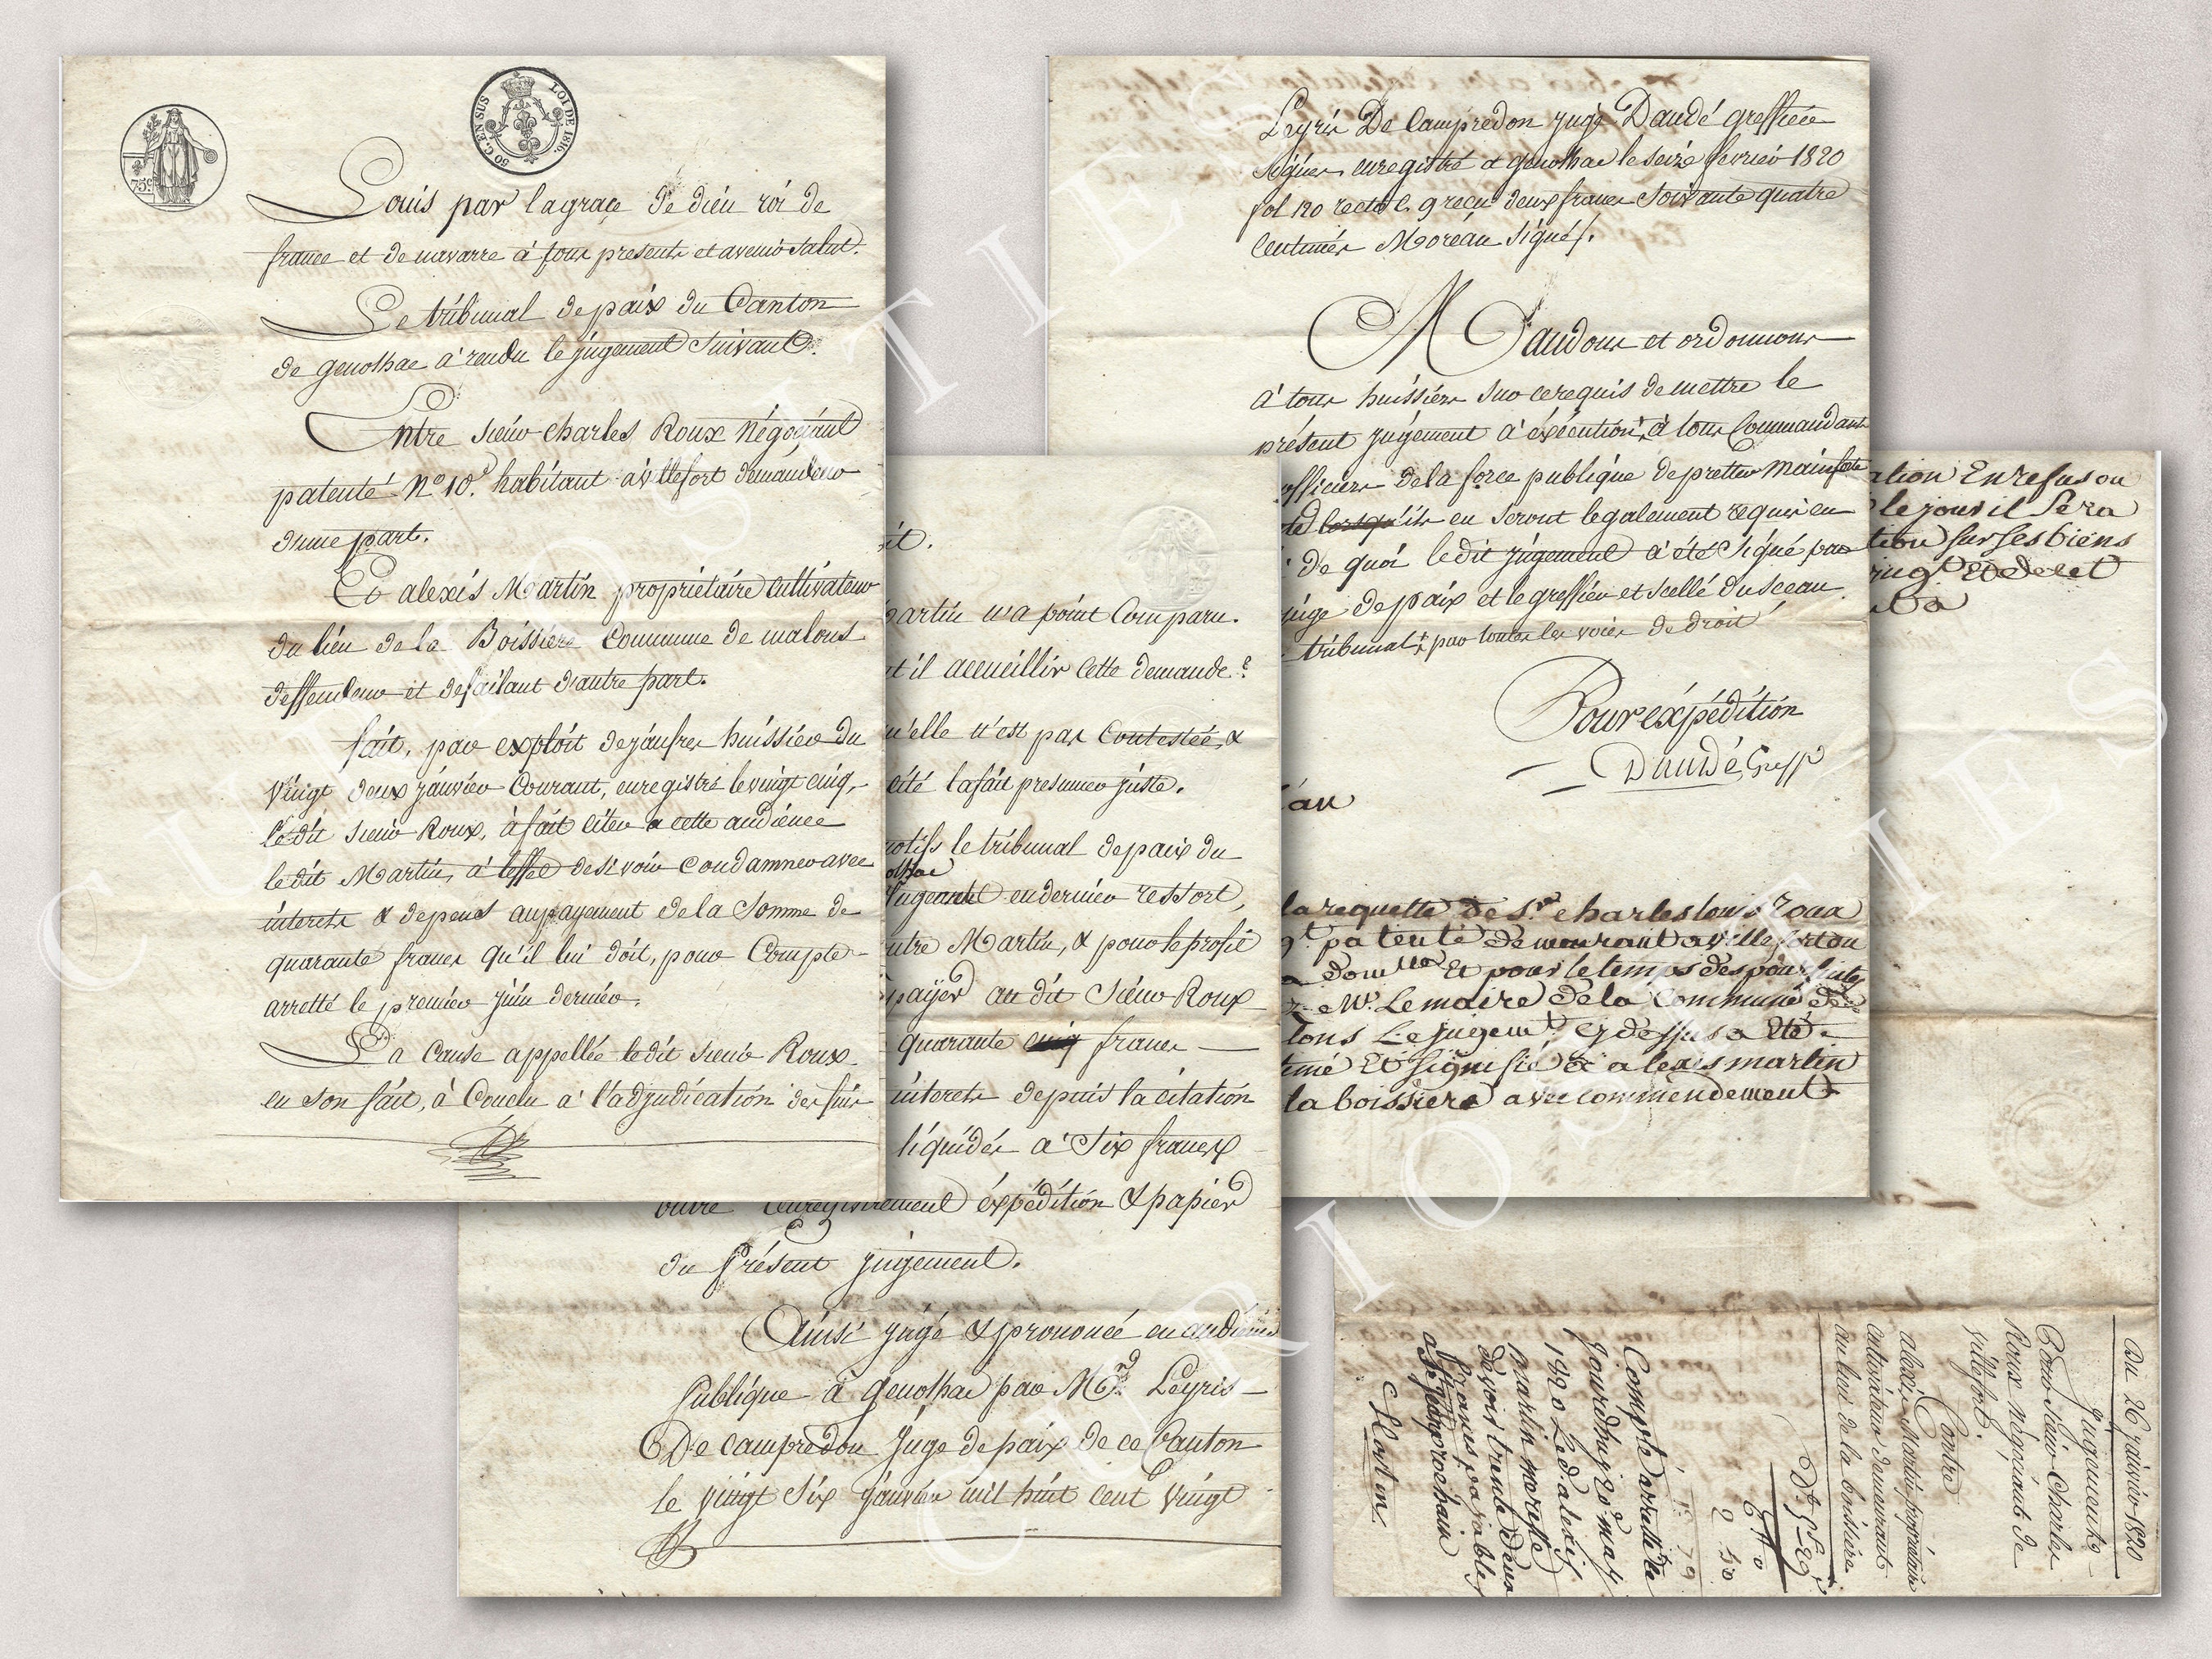 75c
50 C. EN SUS LOI DE 1816.
Louis par la grace de dieu roi de
france et de navarre à tous presents et avenir salut.
Le tribunal de paix du Canton
de genolhac à rendu le jugement suivant.
Entre sieur charles Roux Négociant
patenté No 10. habitant à villefort demandeur
d'une part.
Et alexis Martin propriétaire Cultivateur
du lieu de la Boissière Commune de malons
deffendeur et defailant d'autre part.
fait, par exploit de jaufres huissier du
vingt deux janvier Courant, enregistré le vingt cinq,
le dit sieur Roux, à fait citer a cette audience
le dit Martin, à leffet de si voir Condamner avec
interets & depens au payement de la Somme de
quarante francs qu'il lui doit, pour Compte
arretté le premier juin dernier.
La Cause appellée le dit sieur Roux
en son fait, à Conclu à l'adjudication des fins
it.
artin n'a point Comparu.
t il accueillir Cette demande?
u'elle n'est pas Contestée, &
cité la fait presumer juste.
otifs le tribunal de paix du
olhac
Jugeant en dernier ressort,
ntre Martin, & pour le profit
payer au dit Sieur Roux
quarante cinq francs
interets depuis la citation
liquidés à Six francs
outre l'enregistrement éxpédition & papier
du Présent jugement.
Ainsi jugé & prononcé en audience
Publique à genolhac par Mr. Leyris
De Campredon Juge de paix de ce Canton
le vingt Six janvier mil huit Cent vingt
Leyris De Campredon juge Daudé greffier
signés, enregistré à genolhac le seize fevrier 1820
fol 120 recto C. 9 recu deux francs Soixante quatre
Centimes Moreau signé/.
Mandons et ordonnons
à tous huissiers sur ce requis de mettre le
présent jugement à éxécution, à tous Commandants
officiers de la force publique de pretter Mainforte
lorsqu'ils en seront legalement requis en
de quoi le dit jugement à été signé par
juge de paix et le greffier et scellé du sceau
tribunal par toutes les voies de droit
Pour éxpédition
Daudé Greff
la requette de Sr charles louis roux
gt patenté demeurant a villefort ou
domlle Et pour le temps des poursuites
Mr Le maire de la Commune de
lons Le jugemt cy dessus a Eté
imé Et signifié a alexis martin
la boissiere avec commendement
ation En refus ou
le jour il Sera
tion sur ses biens
jugt Et de cet
Du 26 janvier 1820
Jugement
Pour Sieur Charles
Roux négociant de
villefort.
Contre
alexis Martin propriétaire
cultivateur demeurant
au lieu de la boissière
2 50
Compte arretté de
jourdhuy 20 may
1820 Led. alexis
martin me reste
devoir trente deux
francs payables
a st jean prochain
CURIOSITIES
CURIOSITIES